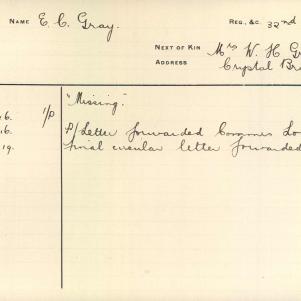 NAME E. C. Gray. REG., &C. 32nd
NEXT OF KIN Mrs W. H. G
ADDRESS Crystal Br
"Missing."
6. 1/P
16. P/Letter forwarded Commes Lo
19. final circular letter forwarded